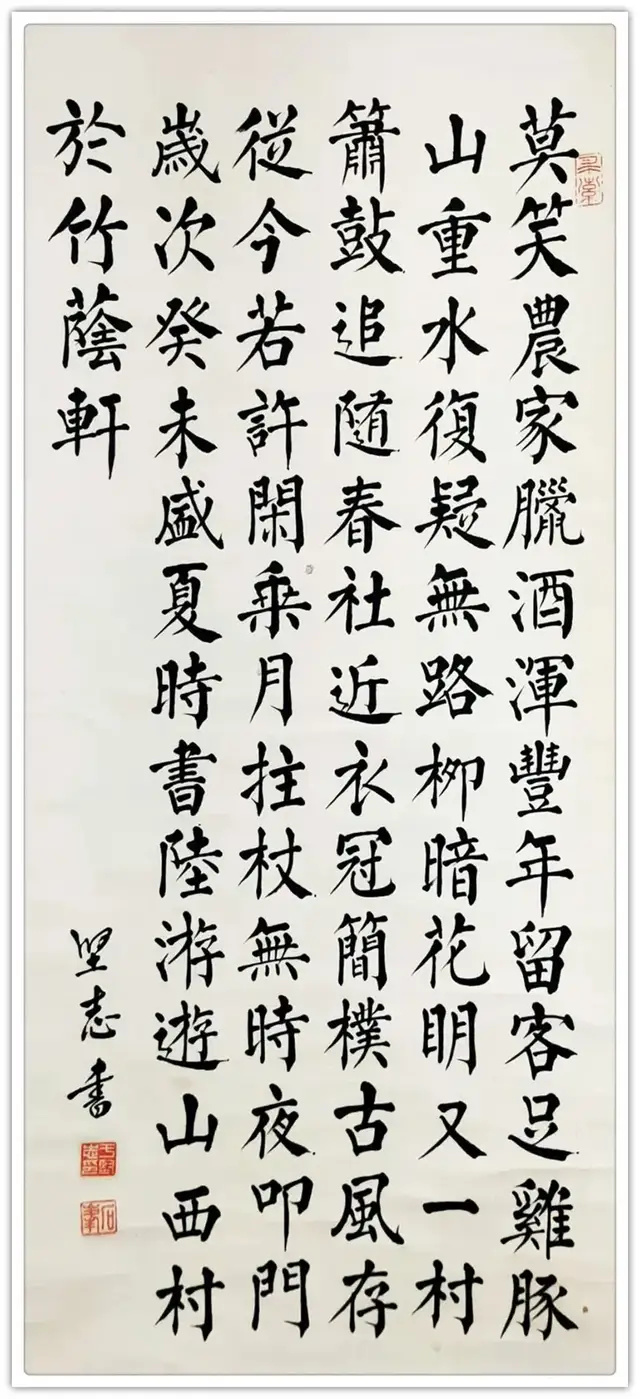 莫笑農家臘酒渾豐年留客足雞豚
山重水復疑無路柳暗花明又一村
簫鼓追随春社近衣冠簡樸古風存
從今若許閑乗月拄杖無時夜叩門
歲次癸未盛夏時書陸游遊山西村
於竹蔭軒
坚志书